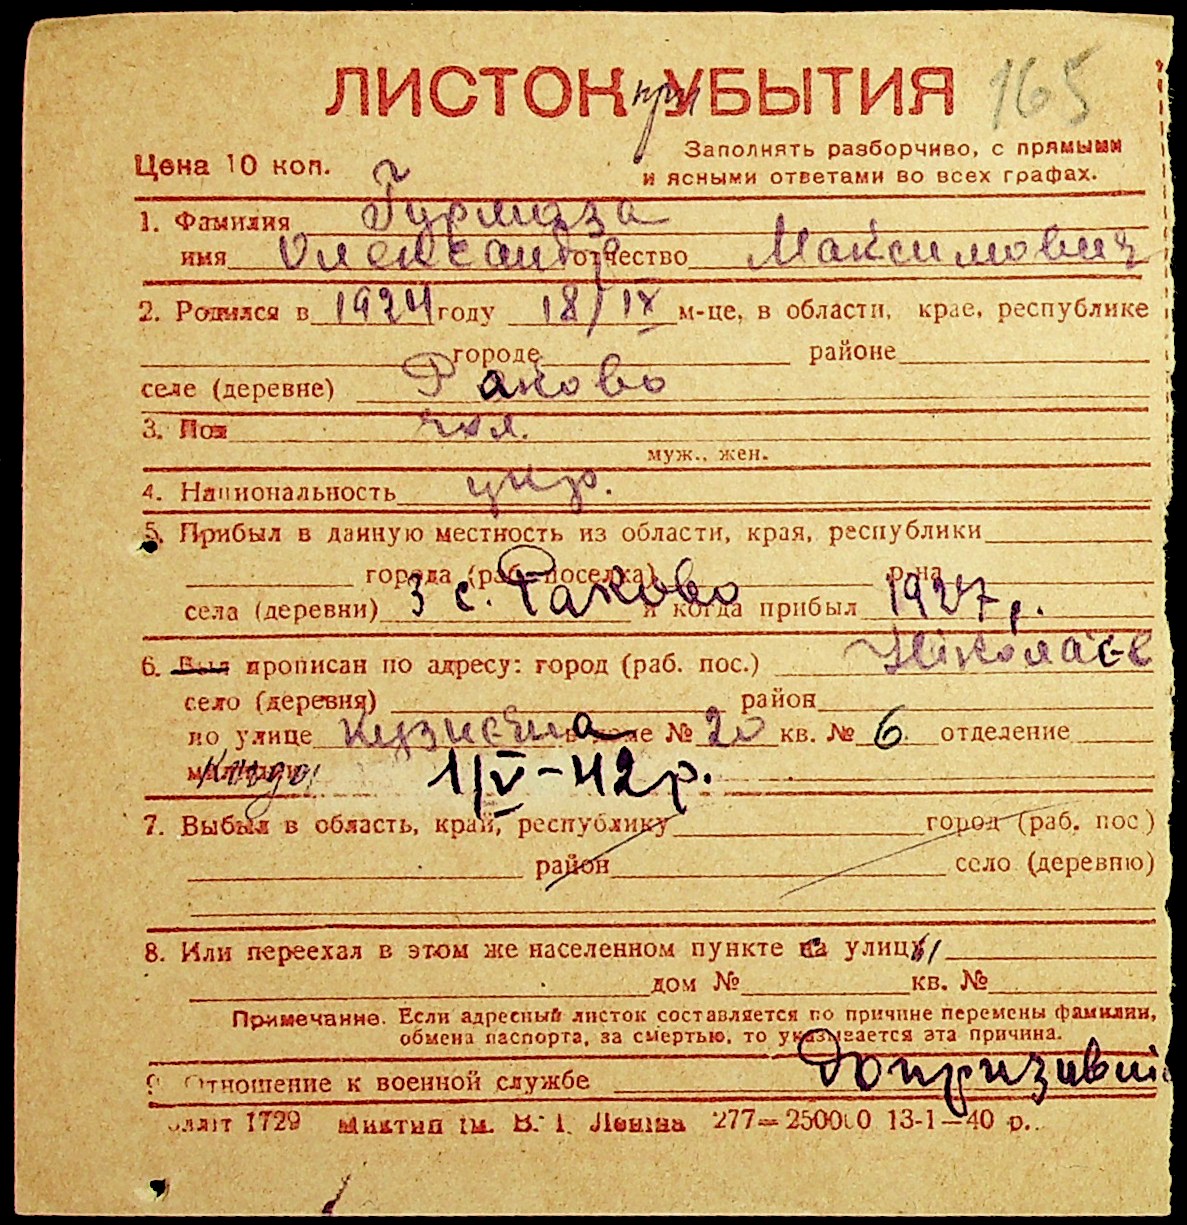 ЛИСТОК при УБЫТИЯ 165
Цена 10 коп.
Заполнять разборчиво, с прямыми
и ясными ответами во всех графах.
1. Фамилия Гурмаза
имя Олександр отчество Максимович
2. Родился в 1924 году 18/IX м-це, в области, крае, республике
городе районе
селе (деревне) Раково
3. Пол чол.
муж., жен.
4. Национальность укр.
5. Прибыл в данную местность из области, края, республики
города (раб. поселка) р-на
села (деревни) З с. Раково и когда прибыл 1927 р.
6. Был прописан по адресу: город (раб. пос.) Ніколаєв
село (деревня) район
по улице Кузнечна в доме № 20 кв. № 6 отделение
милиции Когда 1/V-42 р.
7. Выбыл в область, край, республику город (раб. пос.)
район село (деревню)
8. Или переехал в этом же населенном пункте с улицы
дом № кв. №
Примечание. Если адресный листок составляется по причине перемены фамилии,
обмена паспорта, за смертью, то указывается эта причина.
9. Отношение к военной службе Допризивний
1729 Миктип ім. В. І. Леніна 277—250000 13-1—40 р.